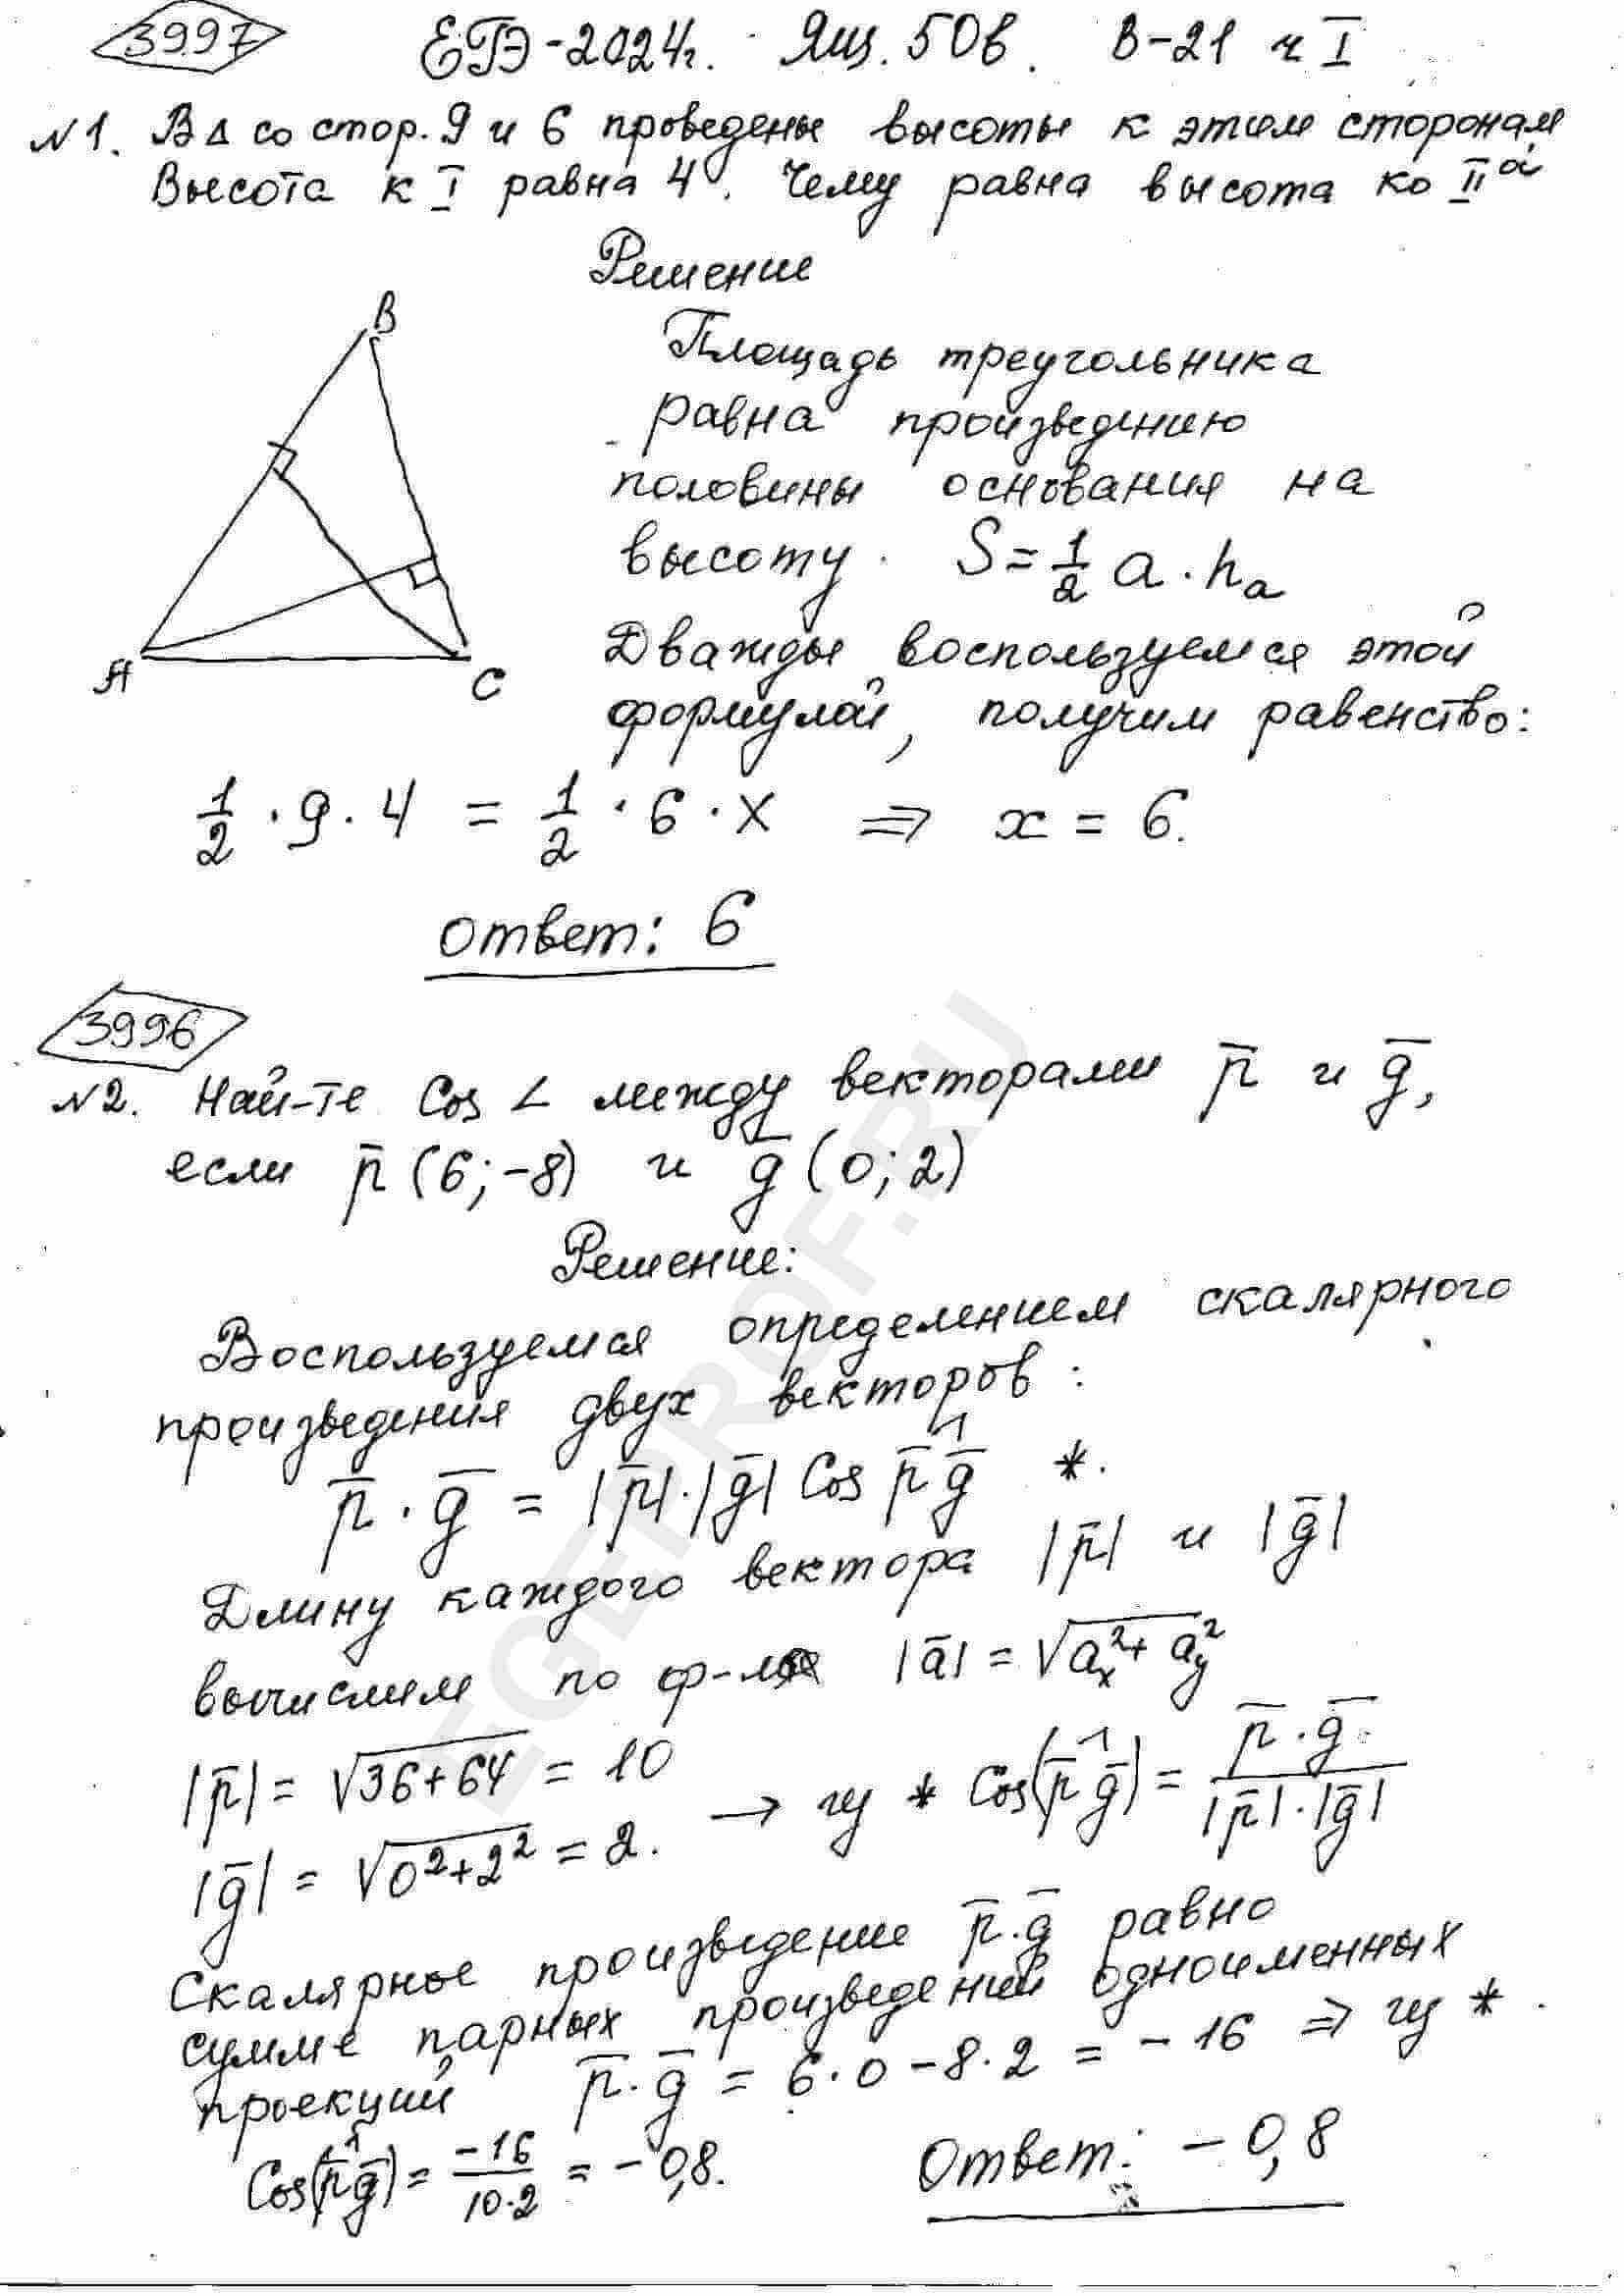 3997
ЕГЭ-2024г. Ящ. 50в. В-21 ч I
№1. В Δ со стор. 9 и 6 проведены высоты к этим сторонам
Высота к I равна 4. Чему равна высота ко II ой
Решение
B
A
C
Площадь треугольника
равна произведению
половины основания на
высоту. S = 1/2 a · hₐ
Дважды воспользуемся этой
формулой, получим равенство:
1/2 · 9 · 4 = 1/2 · 6 · x ⇒ x = 6.
Ответ: 6
3996
№2. Най-те Cos ∠ между векторами p̄ и ḡ,
если p̄ (6; -8) и ḡ (0; 2)
Решение:
Воспользуемся определением скалярного
произведения двух векторов:
p̄ · ḡ = |p̄| · |ḡ| Cos p̄^ḡ *.
Длину каждого вектора |p̄| и |ḡ|
вычислим по ф-ле |ā| = √(aₓ² + a_y²)
|p̄| = √(36+64) = 10
|ḡ| = √(0²+2²) = 2. → из * Cos(p̄^ḡ) = (p̄ · ḡ)/(|p̄| · |ḡ|)
Скалярное произведение p̄ · ḡ равно
сумме парных произведений одноименных
проекций p̄ · ḡ = 6 · 0 - 8 · 2 = - 16 ⇒ из *.
Cos(p̄^ḡ) = -16/(10·2) = - 0,8.
Ответ: - 0,8
EGEPROF.RU